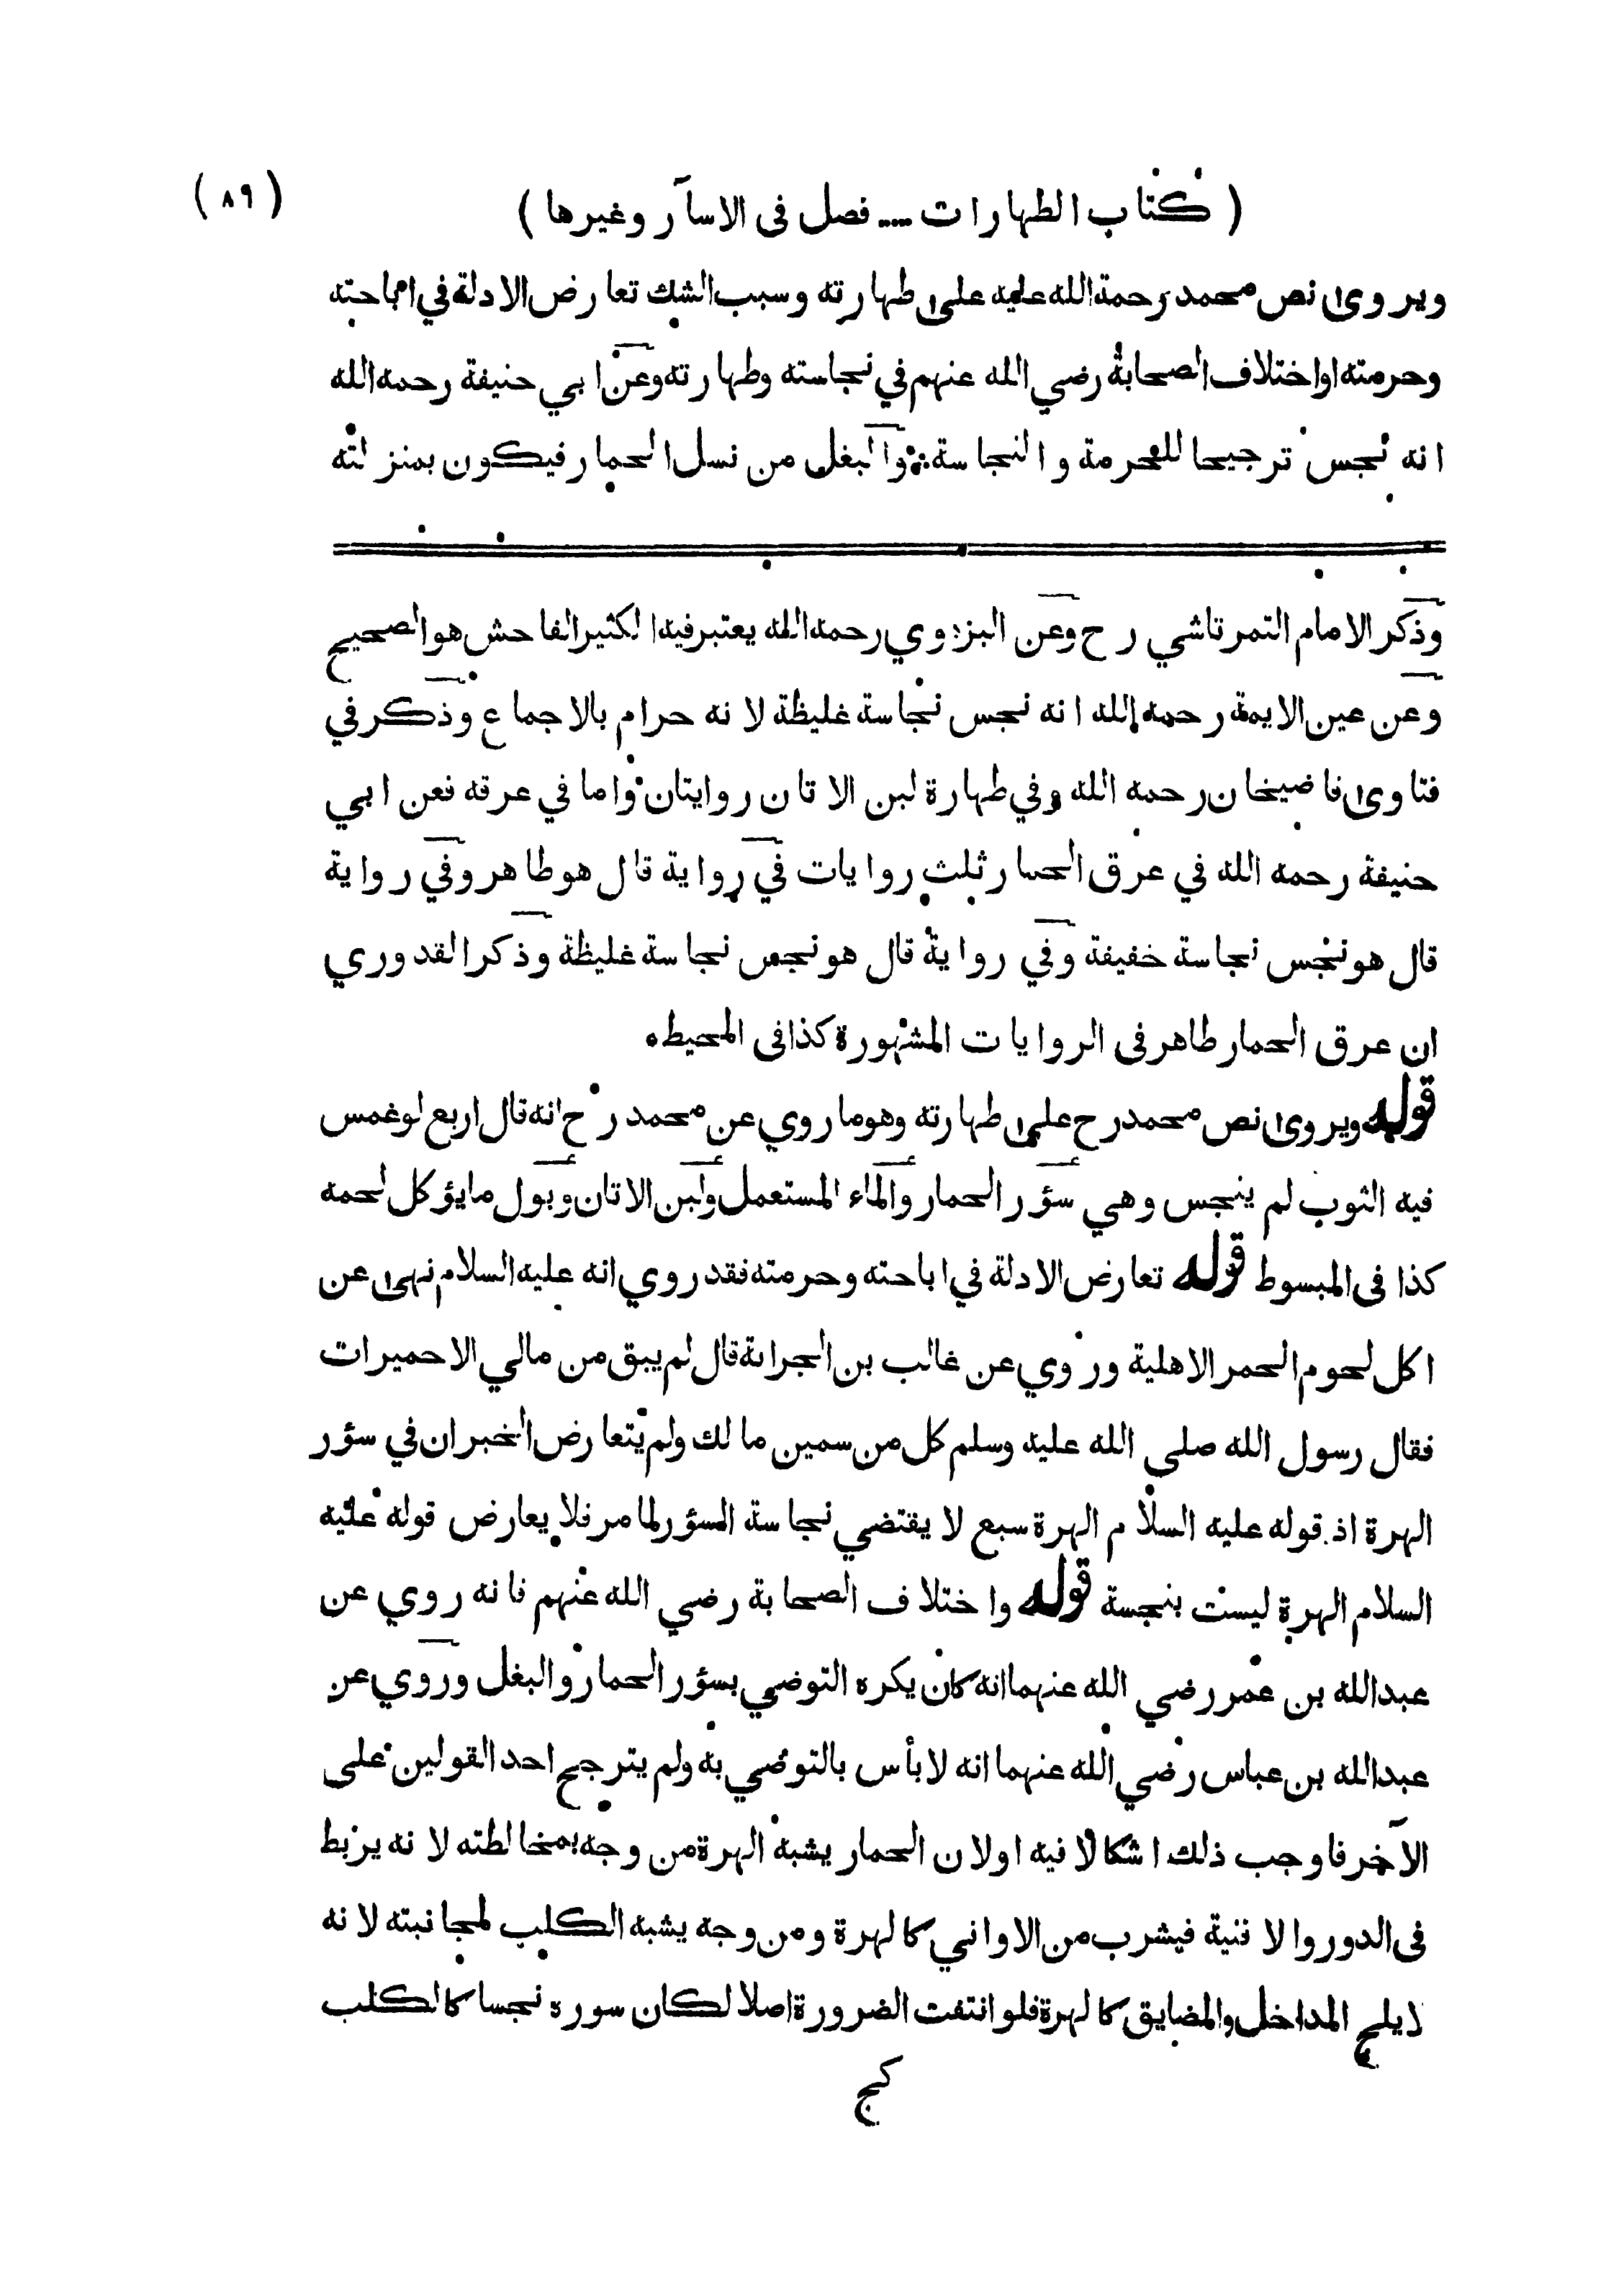 ( كتاب الطهارات .... فصل فى الاسآر وغيرها ) ( ٨٩ )
ويروى نص محمد رحمة الله عليه على طهارته وسبب الشك تعارض الادلة في اباحته
وحرمته او اختلاف الصحابة رضي الله عنهم في نجاسته وطهارته وعن ابي حنيفة رحمه الله
انه نجس ترجيحا للحرمة والنجاسة والبغل من نسل الحمار فيكون بمنزلته
وذكر الامام التمرتاشي رح وعن البزدوي رحمه الله يعتبر فيه الكثير الفاحش هو الصحيح
وعن عين الايمة رحمه الله انه نجس نجاسة غليظة لانه حرام بالاجماع وذكر في
فتاوى قاضيخان رحمه الله وفي طهارة لبن الاتان روايتان واما في عرقه فعن ابي
حنيفة رحمه الله في عرق الحمار ثلث روايات في رواية قال هو طاهر وفي رواية
قال هو نجس نجاسة خفيفة وفي رواية قال هو نجس نجاسة غليظة وذكر القدوري
ان عرق الحمار طاهر فى الروايات المشهورة كذا فى المحيط ه
قوله ويروى نص محمد رح على طهارته وهو ما روي عن محمد رح انه قال اربع لو غمس
فيه الثوب لم ينجس وهي سؤر الحمار والماء المستعمل ولبن الاتان وبول ما يؤكل لحمه
كذا فى المبسوط قوله تعارض الادلة في اباحته وحرمته فقد روي انه عليه السلام نهى عن
اكل لحوم الحمر الاهلية وروي عن غالب بن الجرانة قال لم يبق من مالي الا حميرات
فقال رسول الله صلى الله عليه وسلم كل من سمين مالك ولم يتعارض الخبران في سؤر
الهرة اذ قوله عليه السلام الهرة سبع لا يقتضي نجاسة السؤر لما مر فلا يعارض قوله عليه
السلام الهرة ليست بنجسة قوله واختلاف الصحابة رضي الله عنهم فانه روي عن
عبد الله بن عمر رضي الله عنهما انه كان يكره التوضي بسؤر الحمار والبغل وروي عن
عبد الله بن عباس رضي الله عنهما انه لا بأس بالتوضي به ولم يترجح احد القولين على
الآخر فاوجب ذلك اشكالا فيه اولان الحمار يشبه الهرة من وجه بمخالطته لانه يربط
فى الدور والافنية فيشرب من الاواني كالهرة ومن وجه يشبه الكلب لمجانبته لانه
لا يلج المداخل والمضايق كالهرة فلو انتفت الضرورة اصلا لكان سوره نجسا كالكلب
كج